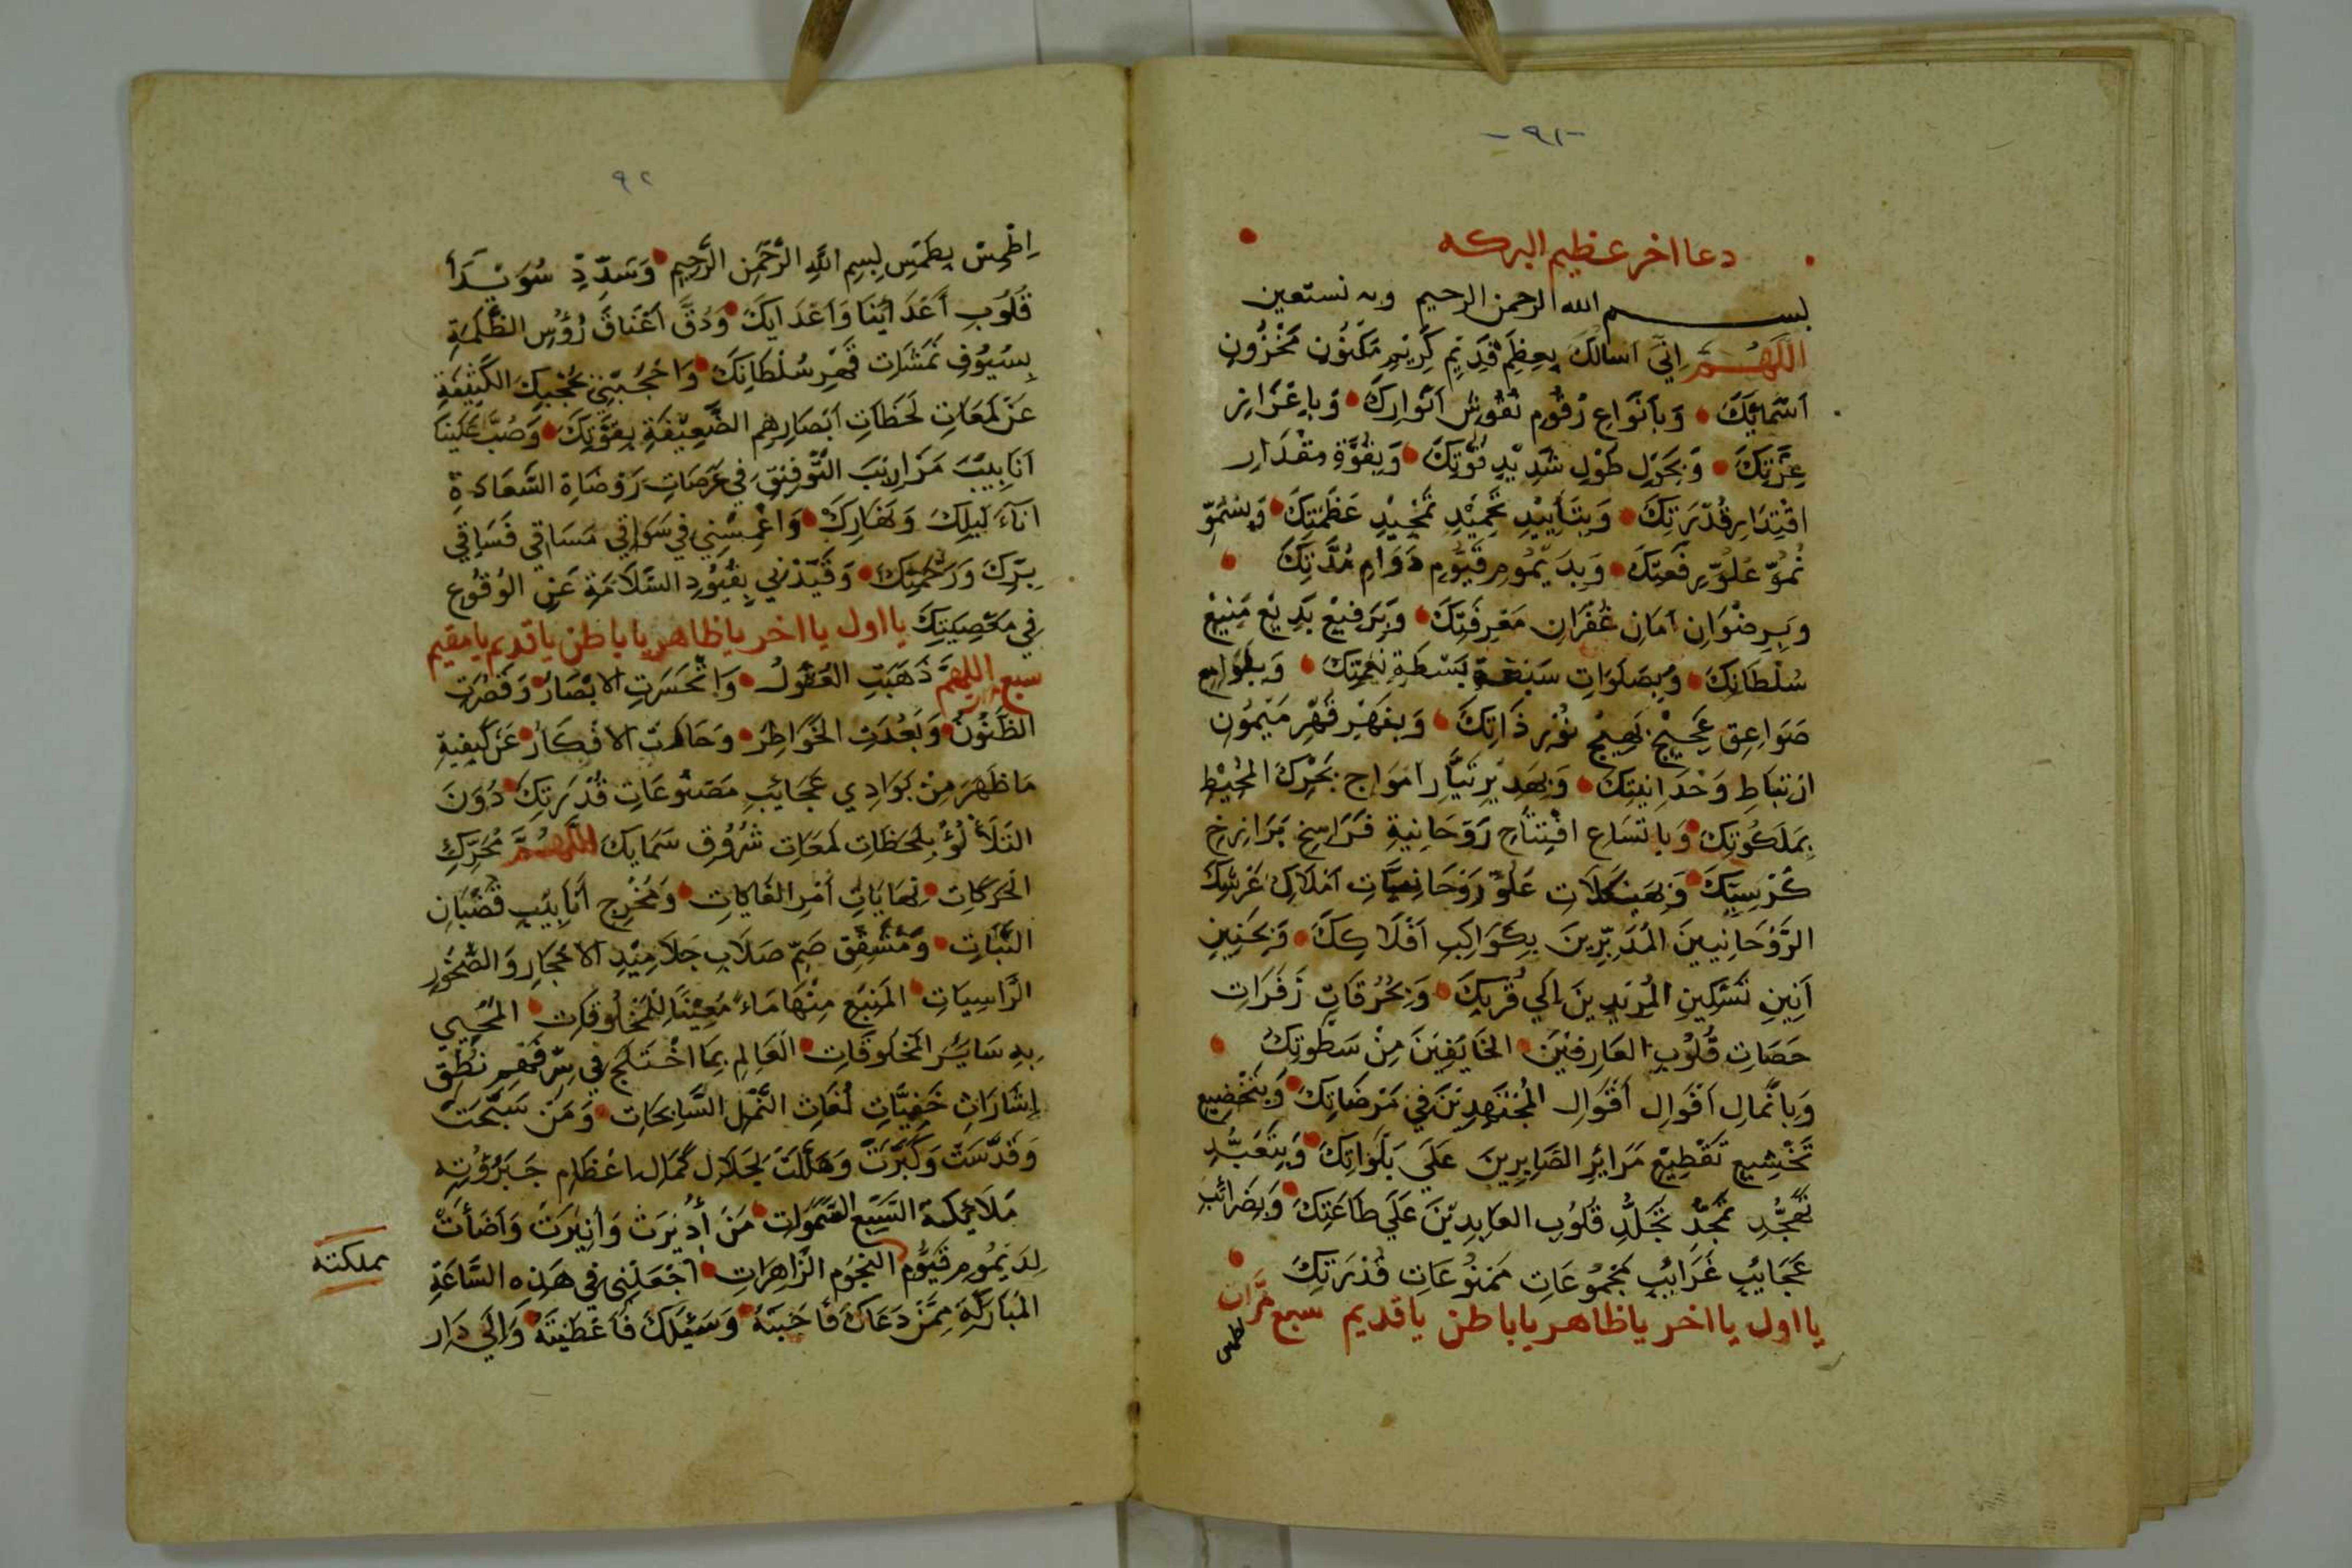 -٩١-
دعا اخر عظيم البركه
بسم الله الرحمن الرحيم وبه نستعين
اللَّهُمَّ اِنّي اسالكَ بِعِظَمِ قَدِيْمِ كَرِيْمِ مَكْنُوْنِ مَخْزُونِ
اَسْمَائِكَ وَبِاَنْوَاعِ رُقُوْمِ نُقُوْشِ اَنْوَارِكَ وَبِاِعْزَازِ
عِزَّتِكَ وَبِحَوْلِ طَوْلِ شَدِيْدِ قُوَّتِكَ وَبِقُوَّةِ مِقْدَارِ
اقْتِدَارِ قُدْرَتِكَ وَبِتَأْيِيْدِ تَحْمِيْدِ تَمْجِيْدِ عَظَمَتِكَ وَبِسُمُوِّ
نُمُوِّ عُلُوِّ رِفْعَتِكَ وَبِدَيْمُومِ قَيُّوْمِ دَوَامِ مُدَّتِكَ
وَبِرِضْوَانِ اَمَانِ غُفْرَانِ مَغْرِفَتِكَ وَبِرَفِيْعِ بَدِيْعِ مَنِيْعِ
سُلْطَانِكَ وَبِصَلَوَاتِ سَبْعَةِ بَسْطَةِ نِعْمَتِكَ وَبِلَوَامِعِ
صَوَاعِقِ عَجِيْجِ نُوْرِ ذَاتِكَ وَبِقَهْرِ قَهْرِ مَيْمُوْنِ
ارْتِبَاطِ وَحْدَانِيَتِكَ وَبِهَدِيْرِ تَيَّارِ اَمْوَاجِ بَحْرِكَ المُحِيْطِ
بِمَلَكُوْتِكَ وَبِاتّسَاعِ افْتِتَاحِ رَوْحَانِيةِ فَرَاسِخِ بَرَازِخِ
كُرْسِيِّكَ وَبِهَيْكَلَاتِ عُلُوِّ رَوْحَانِيَّاتِ اَمْلَاكِ عَرْشِكَ
الرَّوْحَانِيينَ المُدَبِّرِينَ بِكَوَاكِبِ اَفْلَاكِكَ وَبِحَنِيْنِ
اَنِيْنِ تَسْكِينِ المُرِيْدِينَ اِلَي قُرْبِكَ وَبِحُرْقَاتِ زَفَرَاتِ
خَصَاتِ قُلُوْبِ العَارِفِيْنَ الخَايِفِيْنَ مِنْ سَطْوَتِكَ
وَبِاَنْمَالِ اَقْوَالِ اَقْوَالِ المُجْتَهِدِيْنَ فِي مَرْضَاتِكَ وَبِتَخْضِيعِ
تَخْشِيعِ تَقْطِيْعِ مَرَائِرِ الصَّابِرِينَ عَلَي بَلْوَاتِكَ وَبِتَعَبُّدِ
تَمَجُّدِ تَجَلُّدِ قُلُوْبِ العَابِدِيْنَ عَلَي طَاعَتِكَ وَبِضَرَائِبِ
عَجَايِبِ غَرَايِبِ مَجْمُوْعَاتِ مَمْنُوْعَاتِ قُدْرَتِكَ
يا اول يا اخر يا ظاهر يا باطن يا قديم سبع مرَّات
٩٢
اِطْمِسْ بِطَمْسِ لِبِسِمِ اللَّهِ الرَّحْمَنِ الرَّحِيْمِ وَسَدِّدْ سُوَيْدَاْ
قُلُوْبِ اَعْدَائِنَا وَاَعْدَايِكَ وَدُقَّ اَعْنَاقَ رُؤُسِ الظَّلَمَةِ
بِسُيُوْفِ نَمَشَاتِ قَهْرِ سُلْطَانِكَ وَاحْجُبْنِي بِحُجْبِكَ الكَثِيْفَةِ
عَنْ لَمَعَاتِ لَحَظَاتِ اَبْصَارِهِمِ الضَّعِيْفَةِ بِقُوَّتِكَ وَصُبَّ عَلَيْنَا
اَنَابِيْبَ مَزَارِيْبِ التَّوْفِيْقِ فِي عَرَصَاتِ رَوْضَاةِ السَّعَادَةِ
اناءَ لَيلِكَ وَنَهَارِكَ وَاغْمِسْنِي فِي سَوَاقِي مَسَاقِي فَسَاقِي
بِرِّكَ وَرَحْمَتِكَ وَقَيِّدْنِي بِقُيُوْدِ السَّلَامَةِ عَنِ الوُقُوْعِ
فِي مَعْصِيَتِكَ يا اول يا اخر يا ظاهر يا باطن يا قديم يا مقيم
سبع مرات اللهمَّ ذَهَبَتِ العُقُوْلُ وَانْحَسَرَتِ الابْصَارُ وَقَصُرَتِ
الظُنُوْنُ وَبَعُدَتِ الخَوَاطِرُ وَحَارَتِ الافْكَارُ عَنْ كَيْفِيةِ
مَا ظَهَرَ مِنْ بَوَادِي عَجَايِبِ مَصْنُوْعَاتِ قُدْرَتِكَ دُوْنَ
التَلَأْلُؤِ بِلَحَظَاتِ لَمَعَاتِ شُرُوْقِ سَمَايِكَ اللَّهُمَّ مُحَرِّكِ
الحَرَكَاتِ نِهَايَاتِ اَمْرِ الغَايَاتِ وَمُخْرِجِ اَنَابِيْبِ قُضْبَانِ
النَّبَاتِ وَمُشَقِّقِ صَمِّ صَلَابِ جَلَامِيْدِ الاحْجَارِ وَالصُّخُوْرِ
الرَّاسِيَاتِ المَنْبَعِ مِنْهَا مَاءً مَعِيْنًا لِلْمَخْلُوْقَاتِ المُحْيِي
بِهِ سَايِرَ المَخلُوْقَاتِ العَالِمِ بِمَا اخْتَلَجَ فِي سِرِّ فَهْمِ نُطْقِ
اِشَارَاتِ خَفِيَّاتِ لُغَاتِ النَّمْلِ السَّابِحَاتِ وَمَنْ سَبَّحَتْ
وَقَدَّسَتْ وَكَبَّرَتْ وَهَلَّلَتْ لِجَلَالِ كَمَالِ اعْظَامِ جَبَرُوْتِه
مَلَائِكَةُ السَّبْعِ السَّمٰوَات مَنْ أُدِيْرَتْ وَاُنِيْرَتْ وَاَضَأَتْ
لِدَيْمُوْمِ قَيُّوْمِ النجُوْم الزَّاهِرَاتِ اجْعَلْنِي فِي هَذِهِ السَّاعَةِ
مملكته
المُبَارَكَةِ مِمَّنْ دَعَاكَ فَأَجَبْتَهُ وَسَئَلَكَ فَأَعْطَيْتَهُ وَاِلَي دَار